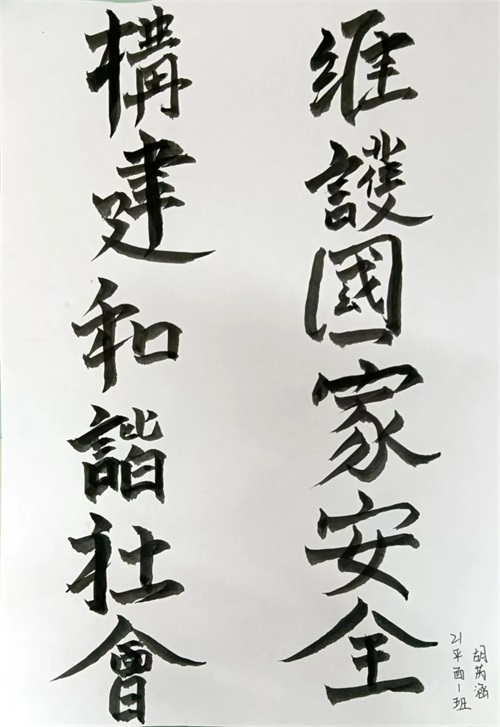 維護國家安全
構建和諧社會
胡芮涵
21平面1班